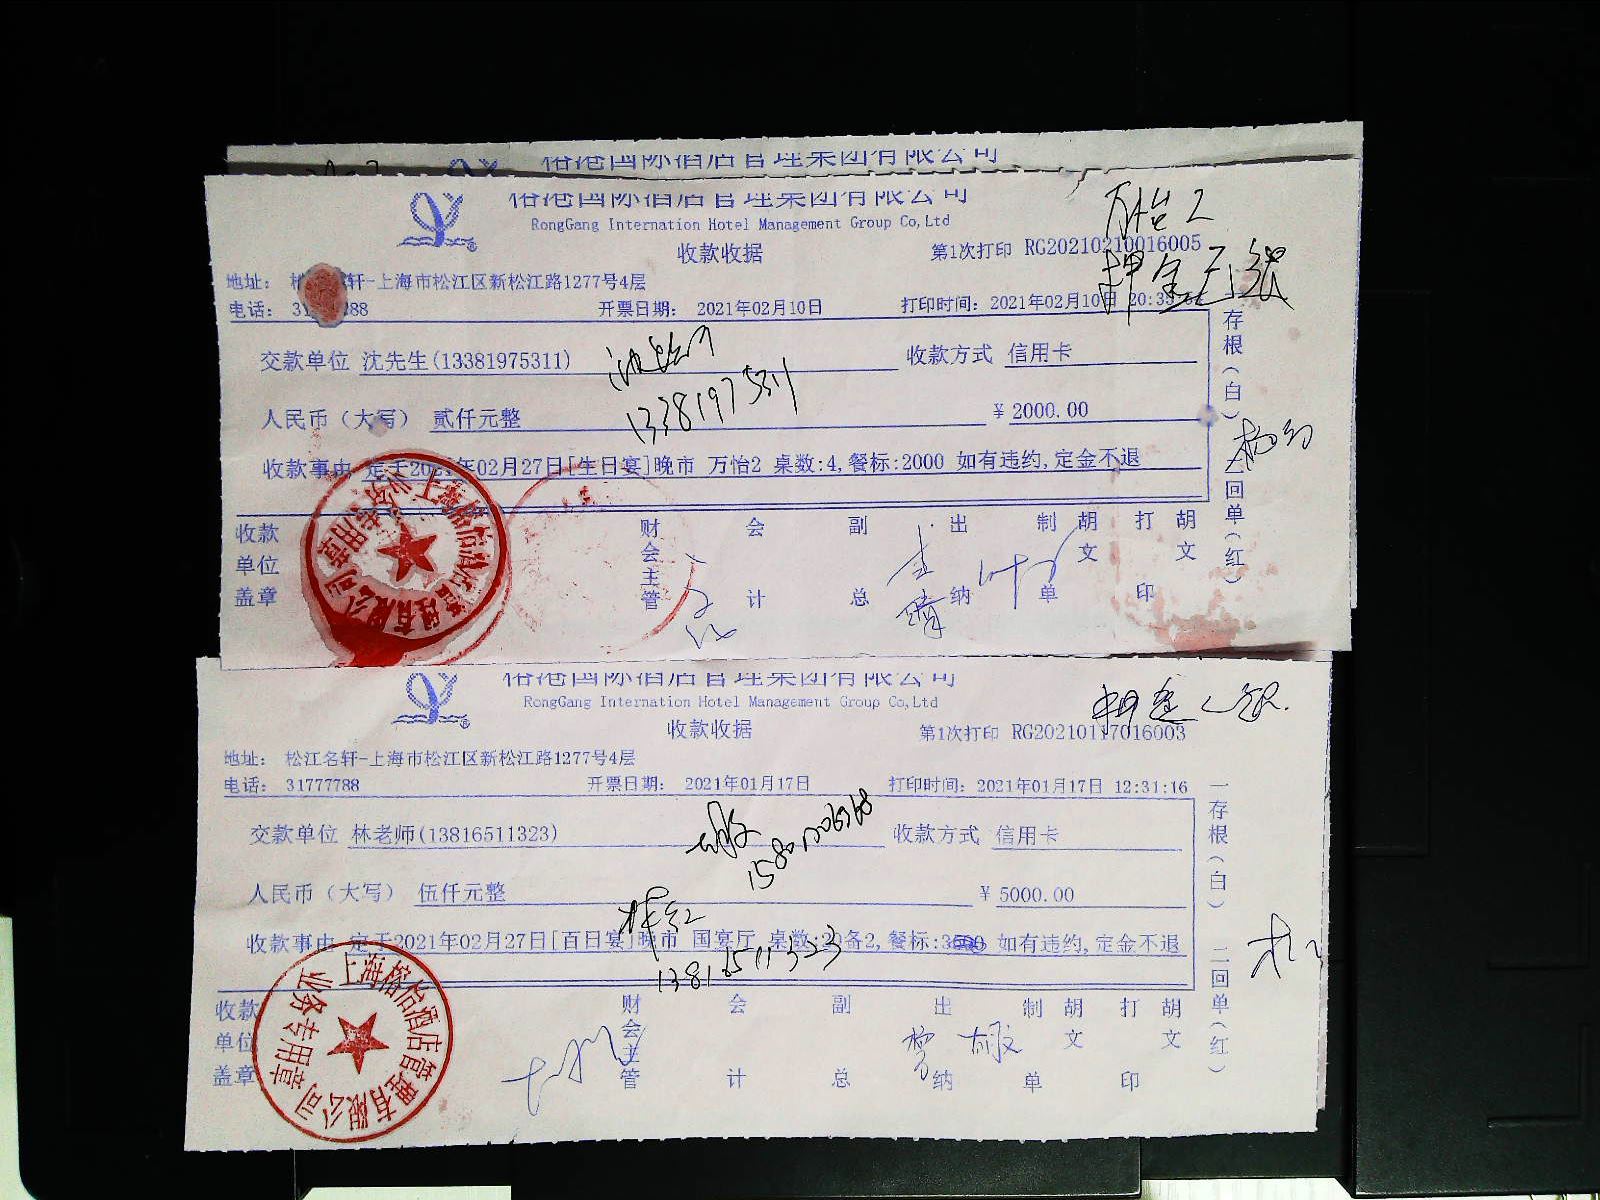 国际酒店管理集团有限公司
港国际酒店管理集团有限公司
RongGang International Hotel Management Group Co,Ltd
万怡2
收款收据
第1次打印 RG20210210016005
押金已
地址: 轩-上海市松江区新松江路1277号4层
电话: 31 88 开票日期: 2021年02月10日 打印时间: 2021年02月10日 20:39
交款单位 沈先生(13381975311) 收款方式 信用卡
13381975311
人民币(大写) 贰仟元整 ¥ 2000.00
收款事由 定于2021年02月27日[生日宴]晚市 万怡2 桌数:4,餐标:2000 如有违约,定金不退
存根(白) 二回单(红)
收款单位盖章 财会主管 会计 副总 出纳 制单 胡文 打印 胡文
上海榕怡酒店管理有限公司
业务专用章
港国际酒店管理集团有限公司
RongGang International Hotel Management Group Co,Ltd
收款收据
第1次打印 RG20210117016003
地址: 松江名轩-上海市松江区新松江路1277号4层
电话: 31777788 开票日期: 2021年01月17日 打印时间: 2021年01月17日 12:31:16
交款单位 林老师(13816511323) 收款方式 信用卡
人民币(大写) 伍仟元整 ¥ 5000.00
收款事由 定于2021年02月27日[百日宴]晚市 国宴厅 桌数:20备2,餐标: 如有违约,定金不退
13816511323
一存根(白) 二回单(红)
收款单位盖章 财会主管 会计 副总 出纳 制单 胡文 打印 胡文
上海榕怡酒店管理有限公司
业务专用章